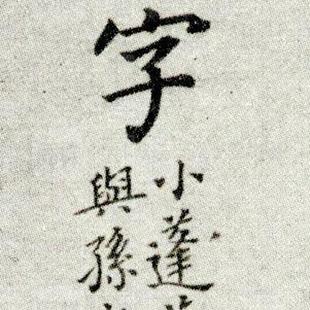 字
小蓬
與孫